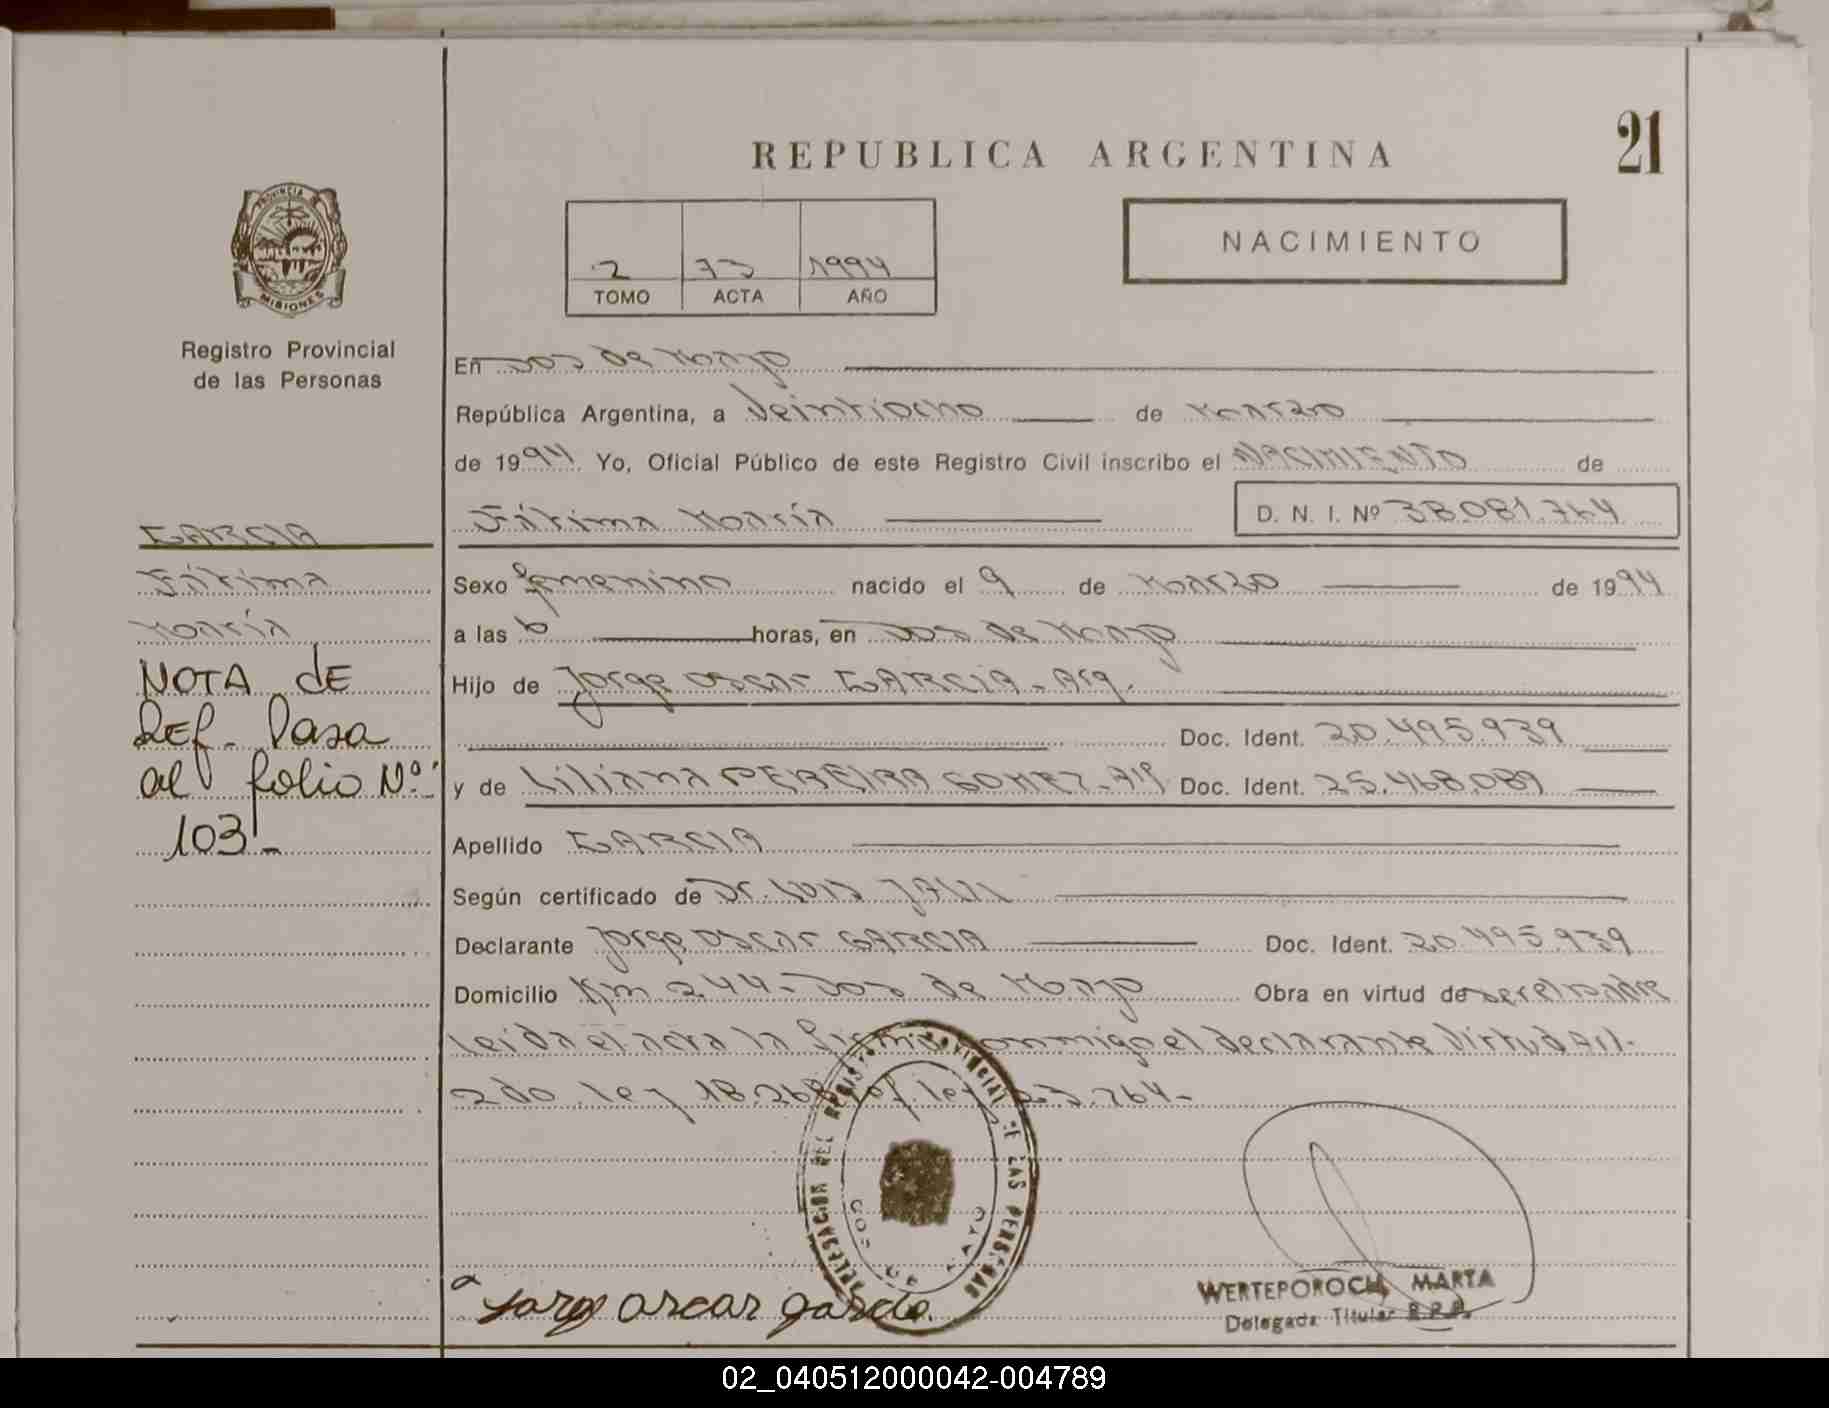 REPUBLICA ARGENTINA
21
PROVINCIA DE
MISIONES
Registro Provincial
de las Personas
2 73 1994
TOMO ACTA AÑO
NACIMIENTO
En Dos de Mayo
República Argentina, a Veintiocho de Marzo
de 1994. Yo, Oficial Público de este Registro Civil inscribo el NACIMIENTO de
Fátima María D. N. I. Nº 38.081.764
GARCIA
Fátima
María
NOTA dE
REf. Pasa
al folio Nº:
103-
Sexo femenino nacido el 9 de Marzo de 1994
a las 6 horas, en Dos de Mayo
Hijo de Jorge Oscar GARCIA - Arg.
Doc. Ident. 20.495.939
y de Liliana PEREIRA GOMEZ - Arg Doc. Ident. 25.468.089
Apellido GARCIA
Según certificado de Dr. Luis
Declarante Jorge Oscar GARCIA Doc. Ident. 20.495.939
Domicilio Km 244 - Dos de Mayo Obra en virtud de ser el padre
Leída el acta la firma conmigo el declarante Virtud Art.
2do ley 18.268 ley 23.764-
DELEGACION DEL REGISTRO PROVINCIAL DE LAS PERSONAS
DOS DE MAYO
Jorge oscar garcia.
WERTEPOROCH, MARTA
Delegada Titular R.P.P.
02_040512000042-004789